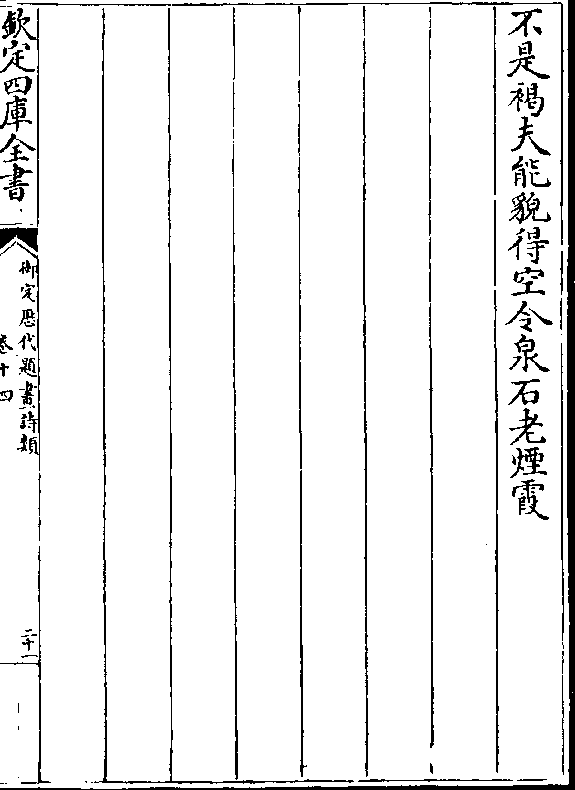 不是褐夫能貌得空令泉石老煙霞
欽定四庫全書
御定歷代題畫詩類
卷十四
二十一